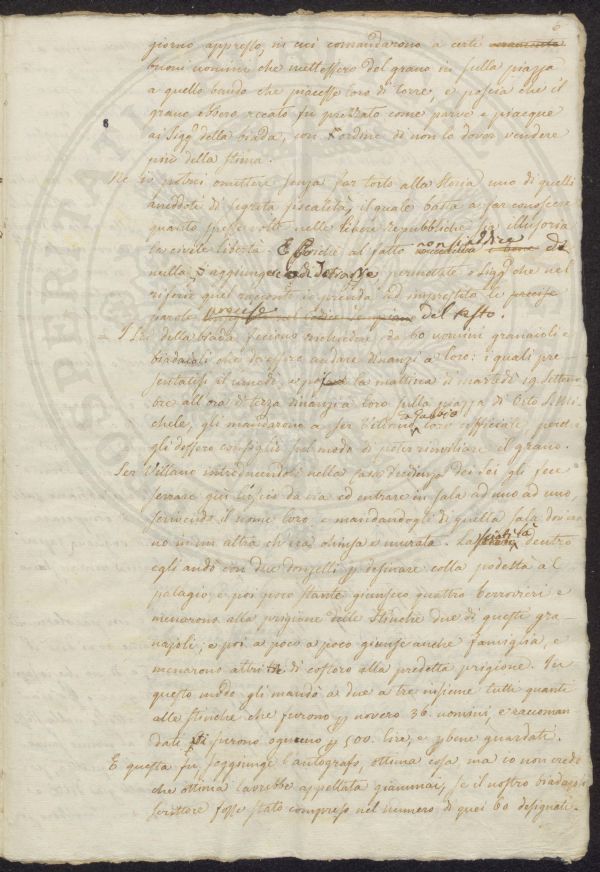 6
giorno appresso, in cui comandarono a certi
buoni uomini che mettessero del grano in sulla piazza
a quello bando che piacesse loro di torre, e poscia che il
grano ebbero recato fu prezzato come parve e piacque
ai Sigg. della biada, con l'ordine di non lo dover vendere
più della stima.
Nè io potrei omettere senza far torto alla storia uno di quelli
aneddoti di segreta fiscalità, il quale basta a far conoscere
quanto spesse volte nelle libere repubbliche sia illusoria
la civile libertà. E poichè al fatto non si addice
nulla aggiungere o di detrarre permettete o Sigg. che nel
riferir quel racconto io prenda ad imprestito le precise
parole precise del testo.
= I Sei della biada feciono richiedere da 60 uomini granaioli e
biadaioli che dovessero andare dinanzi a loro: i quali pre-
sentatisi il lunedì, e poi la mattina di martedì 19. Settem-
bre all'ora di terza dinanzi a loro sulla piazza di Orto S. Mi-
chele, gli mandarono a ser Villano da Gubbio loro uffiziale, perchè
gli dessero consiglio sul modo di poter rinviliare il grano.
Ser Villano introducendoli nella casa dei Sei gli fece
serrare qui l'uscio da via ed entrare in sala ad uno ad uno,
scrivendo il nome loro, e mandandogli di quella sala dov'era-
no in un'altra ch'era chiusa e murata. Lasciatili là dentro
egli andò con due donzelli p desinare colla podestà al
palagio, e poi poco stante giunsero quattro berrovieri e
menarono alla prigione delle Stinche due di questi gra-
naioli; e poi a poco a poco giunse anche famiglia, e
menarono altri di costoro alla predetta prigione. Per
questo modo gli mandò a due a tre insieme tutti quanti
alle stinche che furono p novero 36. uomini, e raccoman-
dati furono ognuno p 500. lire, e bene guardati.
E questa fu, soggiunge l'autografo, ottima cosa, ma io non credo
che ottima l'avrebbe appellata giammai, se il nostro biadajolo
scrittore fosse stato compreso nel numero di quei 60 designati.